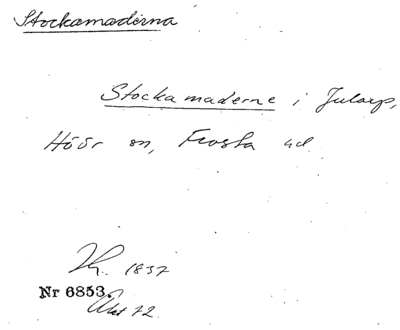 Stockamaderna
Stockamaderne i Jularp,
Höör sn, Frosta hd
1837
Nr 6853.
Akt 72.